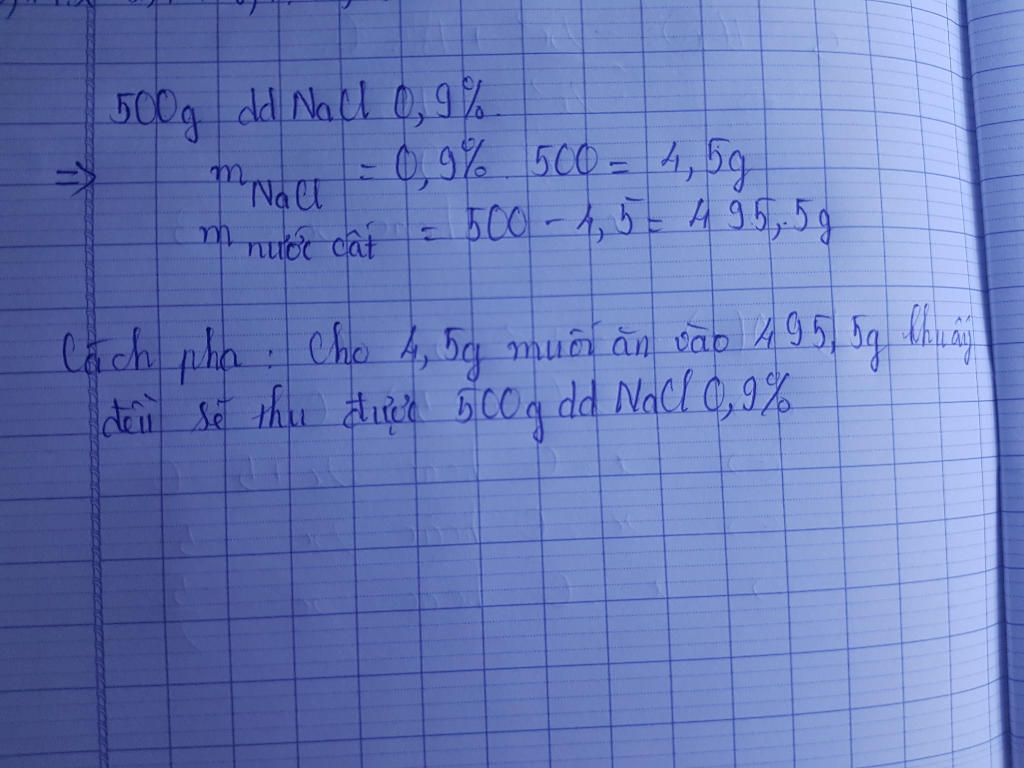 500g dd NaCl 0,9%.
=> m NaCl = 0,9%. 500 = 4,5g
m nước cất = 500 - 4,5 = 495,5g
Cách pha: Cho 4,5g muối ăn vào 495,5g khuấy
đều sẽ thu được 500g dd NaCl 0,9%